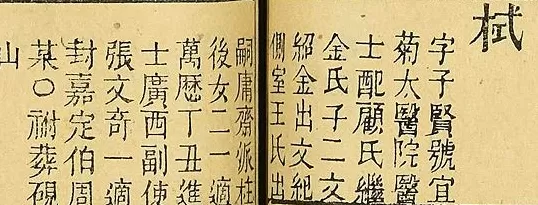 栻
字子賢號宜
菊太醫院醫
士配顧氏繼
金氏子二文
紹金出文紀
側室王氏出
嗣庸齋派柱
後女二一適
萬曆丁丑進
士廣西副使
張文奇一適
封嘉定伯周
某○祔葬硯
山